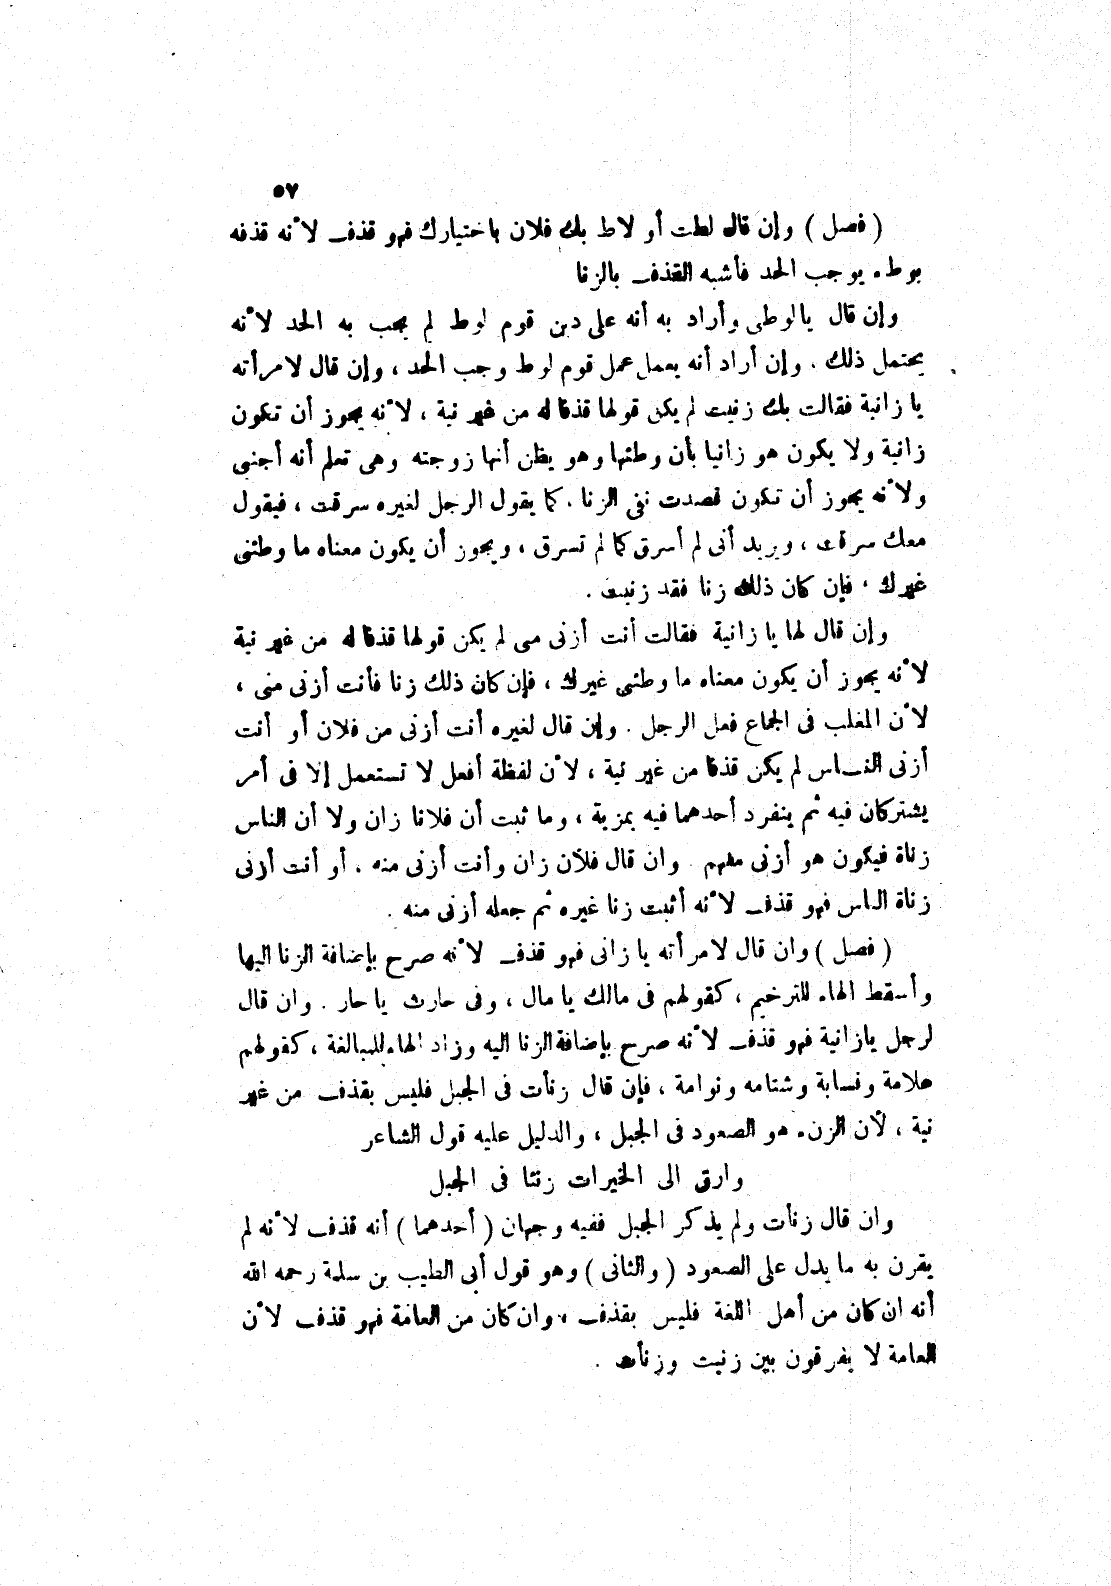 ٥٧
( فصل ) وإن قال لطت أو لاط بك فلان باختيارك فهو قذف لأنه قذفه
بوطء يوجب الحد فأشبه القذف بالزنا
وإن قال يالوطى وأراد به أنه على دين قوم لوط لم يجب به الحد لأنه
يحتمل ذلك . وإن أراد أنه يعمل عمل قوم لوط وجب الحد ، وإن قال لامرأته
يا زانية فقالت بك زنيت لم يكن قولها قذفا له من غير نية ، لأنه يجوز أن تكون
زانية ولا يكون هو زانيا بأن وطئها وهو يظن أنها زوجته وهى تعلم أنه أجنبى
ولأنه يجوز أن تكون قصدت نفى الزنا . كما يقول الرجل لغيره سرقت ، فيقول
معك سرقت ، ويريد أنى لم أسرق كما لم تسرق ، ويجوز أن يكون معناه ما وطئنى
غيرك ، فإن كان ذلك زنا فقد زنيت .
وإن قال لها يا زانية فقالت أنت أزنى منى لم يكن قولها قذفا له من غير نية
لأنه يجوز أن يكون معناه ما وطئنى غيرك ، فإن كان ذلك زنا فأنت أزنى منى ،
لأن المغلب فى الجماع فعل الرجل . وإن قال لغيره أنت أزنى من فلان أو أنت
أزنى النـاس لم يكن قذفا من غير نية ، لأن لفظة أفعل لا تستعمل إلا فى أمر
يشتركان فيه ثم ينفرد أحدهما فيه بمزية ، وما ثبت أن فلانا زان ولا أن الناس
زناة فيكون هو أزنى منهم . وان قال فلان زان وأنت أزنى منه . أو أنت أزنى
زناة الناس فهو قذف لأنه أثبت زنا غيره ثم جعله أزنى منه .
( فصل ) وان قال لامرأته يا زانى فهو قذف لأنه صرح بإضافة الزنا اليها
وأسقط الهاء للترخيم ، كقولهم فى مالك يا مال ، وفى حارث يا حار . وان قال
لرجل يازانية فهو قذف لأنه صرح بإضافة الزنا اليه وزاد الهاء للمبالغة ، كقولهم
علامة ونسابة وشتامه ونوامة ، فإن قال زنأت فى الجبل فليس بقذف من غير
نية ، لأن الزنء هو الصعود فى الجبل ، والدليل عليه قول الشاعر
وارق الى الخيرات زنئا فى الجبل
وان قال زنأت ولم يذكر الجبل ففيه وجهان ( أحدهما ) أنه قذف لأنه لم
يقرن به ما يدل على الصعود ( والثانى ) وهو قول أبى الطيب بن سلمة رحمه الله
أنه ان كان من أهل اللغة فليس بقذف ، وان كان من العامة فهو قذف لأن
العامة لا يفرقون بين زنيت وزنأت .